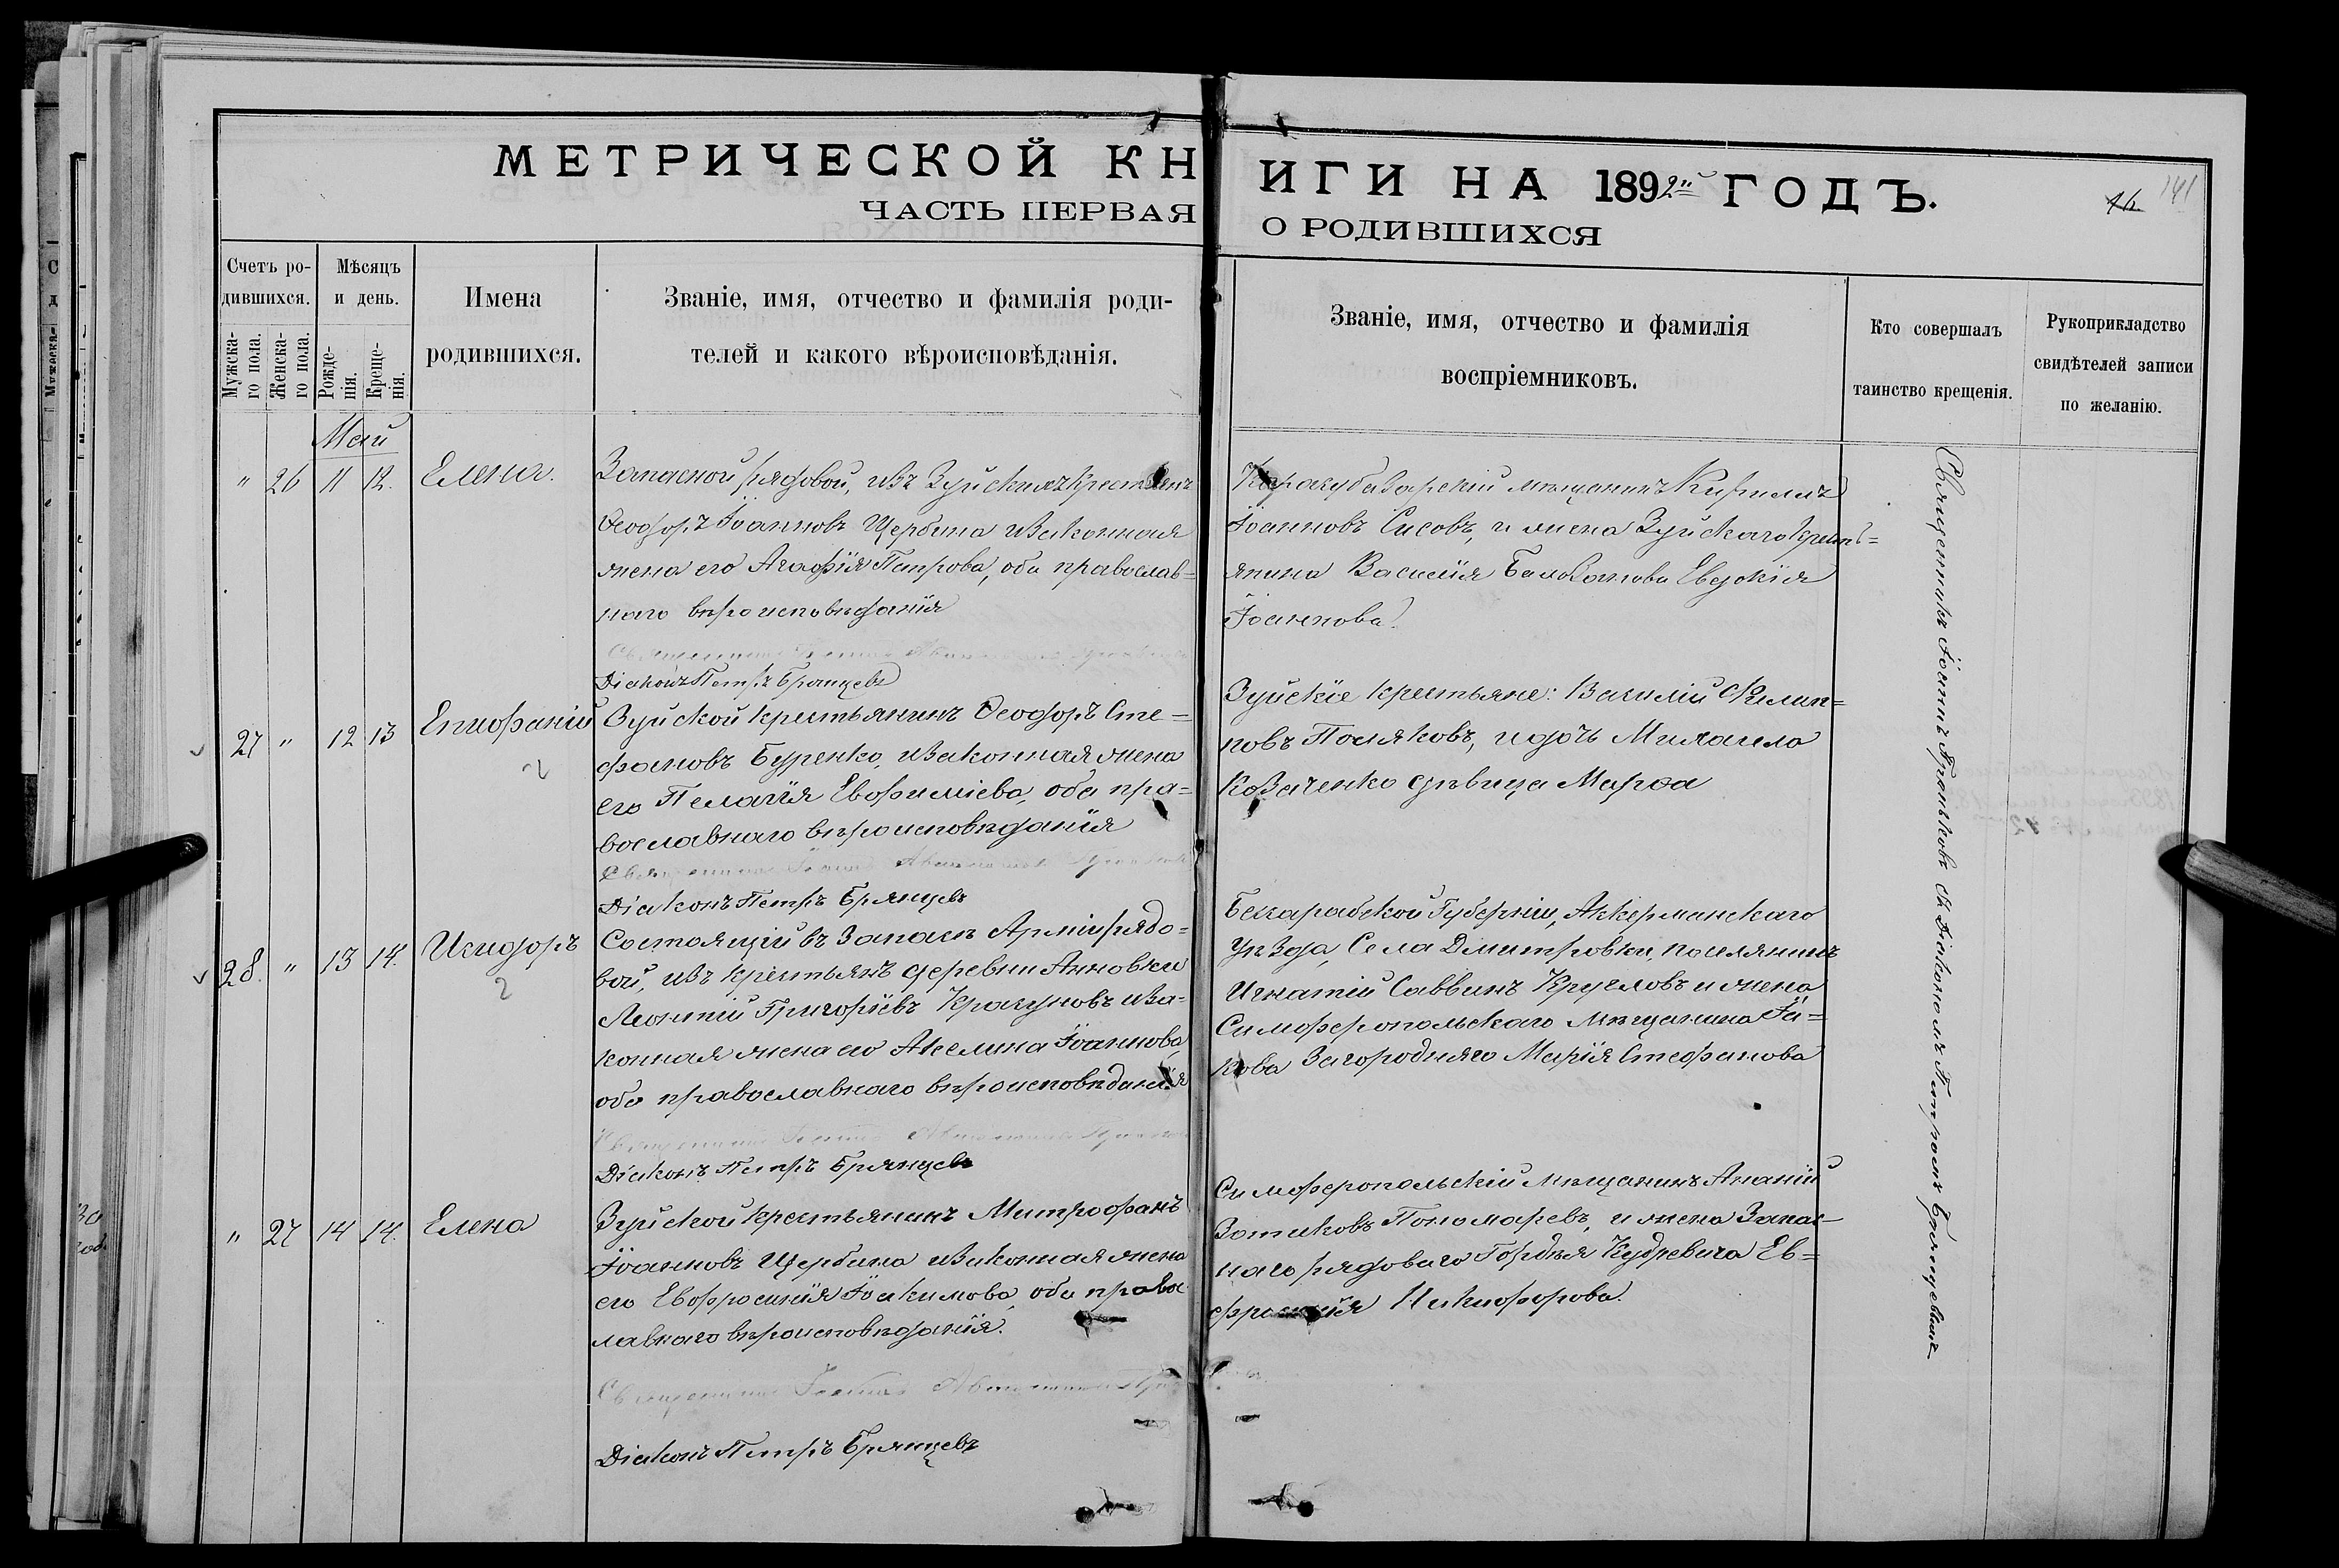 МЕТРИЧЕСКОЙ КНИГИ НА 1892й ГОДЪ.
141
ЧАСТЬ ПЕРВАЯ О РОДИВШИХСЯ
Счетъ ро-
дившихся.
Мужска-
го пола.
Женска-
го пола.
Мѣсяцъ
и день.
Рожде-
нія.
Креще-
нія.
Имена
родившихся.
Званіе, имя, отчество и фамилія роди-
телей и какого вѣроисповѣданія.
Званіе, имя, отчество и фамилія
воспріемниковъ.
Кто совершалъ
таинство крещенія.
Рукоприкладство
свидѣтелей записи
по желанію.
Май
" 26 11 12. Елена.
Запасной рядовой, изъ Зуйскихъ крестьянъ
Ѳеодоръ Іоанновъ Щербина и законная
жена его Агафія Петрова, оба православ=
наго вѣроисповѣданія
Діаконъ Петръ Брянцевъ
Карасубазарскій мѣщанинъ Кириллъ
Іоанновъ Сисовъ, и жена Зуйскаго кресть=
янина Василія Евдокія
Іоаннова.
27 " 12 13 Епифаній
Зуйской крестьянинъ Ѳеодоръ Сте=
фановъ Буренко, и законная жена
его Пелагія Евфиміева, оба пра=
вославнаго вѣроисповѣданія
Священникъ Іоаннъ
Діаконъ Петръ Брянцевъ
Зуйскіе крестьяне: Василій Филип=
повъ Поляковъ, и дочь Михаила
Козаченко дѣвица Марѳа
28. " 13 14. Исидоръ
Состоящій въ Запасѣ Арміи рядо=
вой, изъ крестьянъ деревни Анновки
Леонтій Григоріевъ Крагуновъ и за=
конная жена его Акелина Іоаннова,
оба православнаго вѣроисповѣданія
Діаконъ Петръ Брянцевъ
Бессарабской Губерніи, Аккерманскаго
Уѣзда, Села Дмитровки, поселянинъ
Игнатій Саввинъ Кругловъ и жена
Симферопольскаго Мѣщанина Іа=
кова Загородняго Марія Стефанова
" 27 14 14. Елена
Зуйской крестьянинъ Митрофанъ
Іоанновъ Щербина и законная жена
его Евфросинія Іоакимова, оба правос
лавнаго вѣроисповѣданія.
Священникъ Іоаннъ
Діаконъ Петръ Брянцевъ
Симферопольскій мѣщанинъ Ананій
Зотиковъ Пономаревъ, и жена Запас=
наго рядоваго Гордѣя Кудревича Ев=
фросинія Никифорова.
Священникъ Іоаннъ съ Діакономъ Петромъ Брянцевымъ